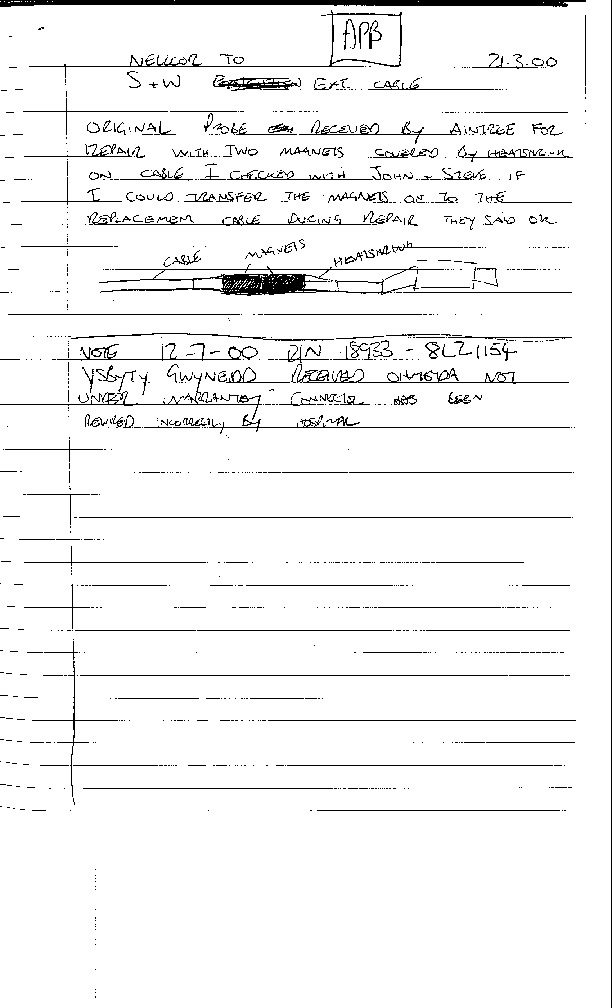 APB
NELLCOR TO 21.3.00
S+W EXT CABLE
ORIGINAL PROBE RECEIVED BY AINTREE FOR
REPAIR WITH TWO MAGNETS COVERED BY HEATSHRINK
ON CABLE I CHECKED WITH JOHN + STEVE IF
I COULD TRANSFER THE MAGNETS ON TO THE
REPLACEMENT CABLE DURING REPAIR THEY SAID OK
CABLE MAGNETS HEATSHRINK
NOTE 12-7-00 P/N 18933-8LZ1154
YSBYTY GWYNEDD RECEIVED OHMEDA NOT
UNDER WARRANTY CONNECTOR HAS BEEN
REWIRED INCORRECTLY BY HOSPITAL